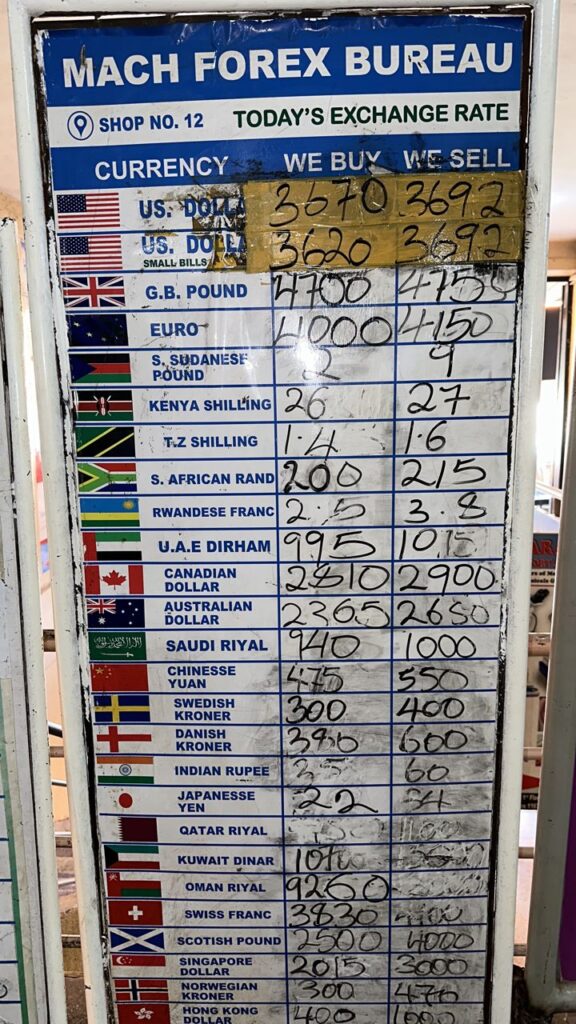 MACH FOREX BUREAU
SHOP NO. 12 TODAY'S EXCHANGE RATE
CURRENCY WE BUY WE SELL
US. DOLLA 3670 3692
US. DOLLA 3620 3692
SMALL BILLS
G.B. POUND 4700 4750
EURO 4000 4150
S. SUDANESE POUND 2 9
KENYA SHILLING 26 27
T.Z SHILLING 1.4 1.6
S. AFRICAN RAND 200 215
RWANDESE FRANC 2.5 3.8
U.A.E DIRHAM 995
CANADIAN DOLLAR 2810 2900
AUSTRALIAN DOLLAR 2365 2650
SAUDI RIYAL 940 1000
CHINESSE YUAN 475 550
SWEDISH KRONER 300 400
DANISH KRONER 390 600
INDIAN RUPEE 60
JAPANESSE YEN 22
QATAR RIYAL
KUWAIT DINAR
OMAN RIYAL 9260
SWISS FRANC 3830
SCOTISH POUND 2500 4000
SINGAPORE DOLLAR 2015 3000
NORWEGIAN KRONER 300 470
HONG KONG DOLLAR 400 1000